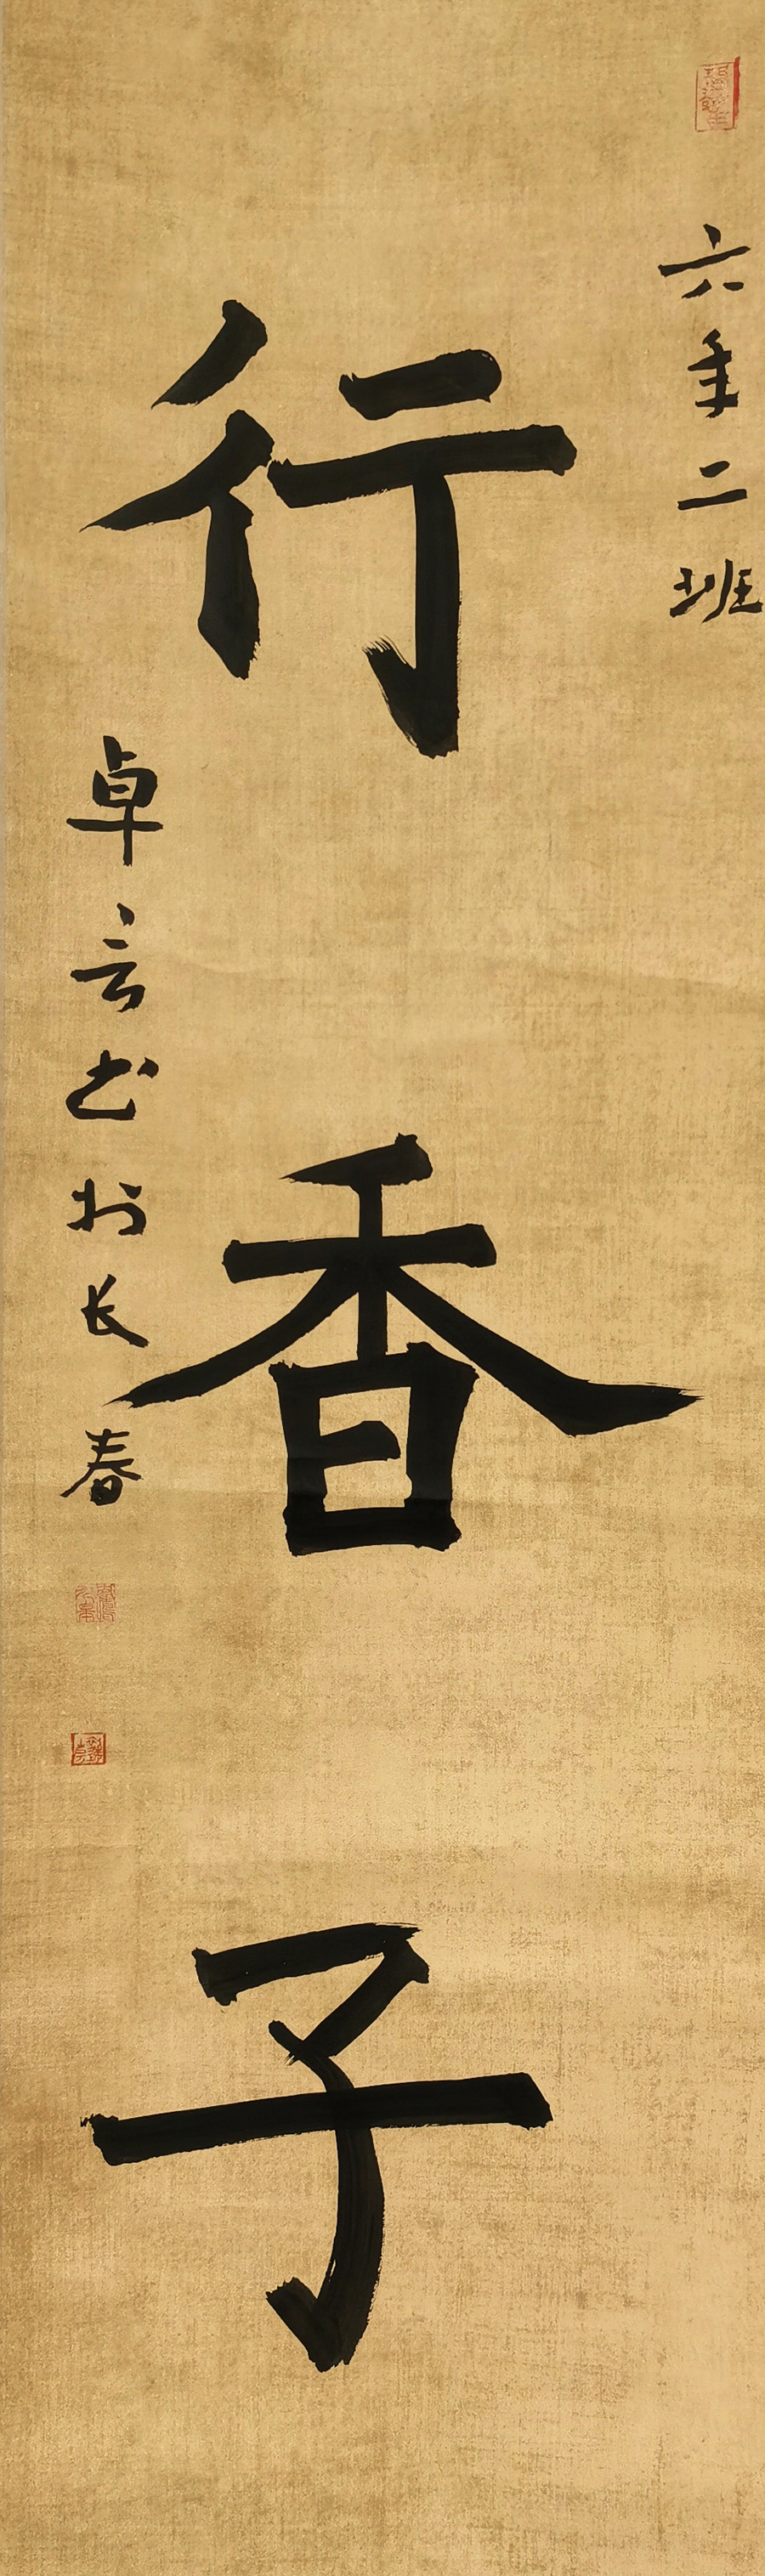 六年二班
行香子
卓言书于长春